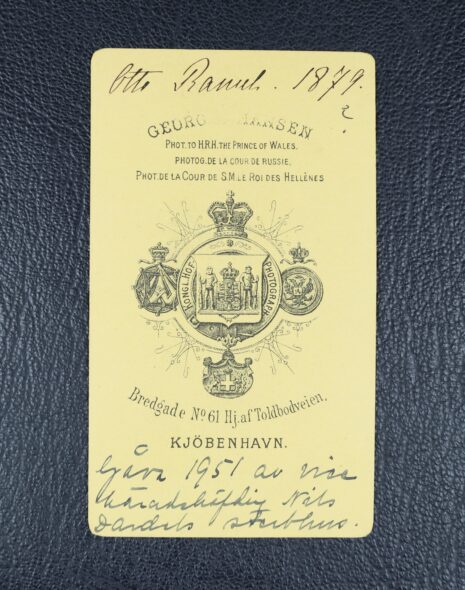 Otto Ramel. 1879.
?
GEORG HANSEN
PHOT. TO H.R.H. THE PRINCE OF WALES.
PHOTOG. DE LA COUR DE RUSSIE.
PHOT. DE LA COUR DE S.M. LE ROI DES HELLÈNES
KONGL. HOF PHOTOGRAPH
Bredgade No. 61 Hj. af Toldbodveien.
KJÖBENHAVN.
Gåva 1951 av vice
häradshöfding Nils
Dardels sterbhus.